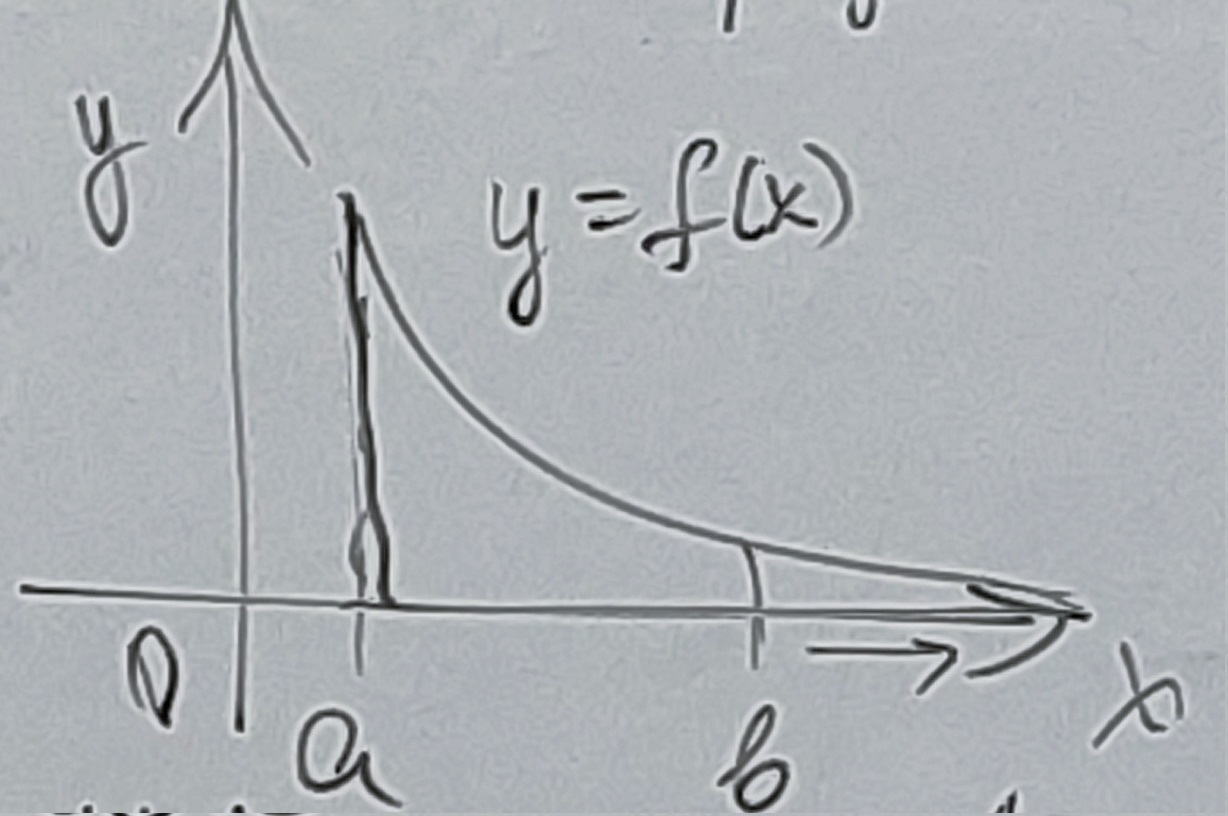 y
y = f(x)
0
a
b
x